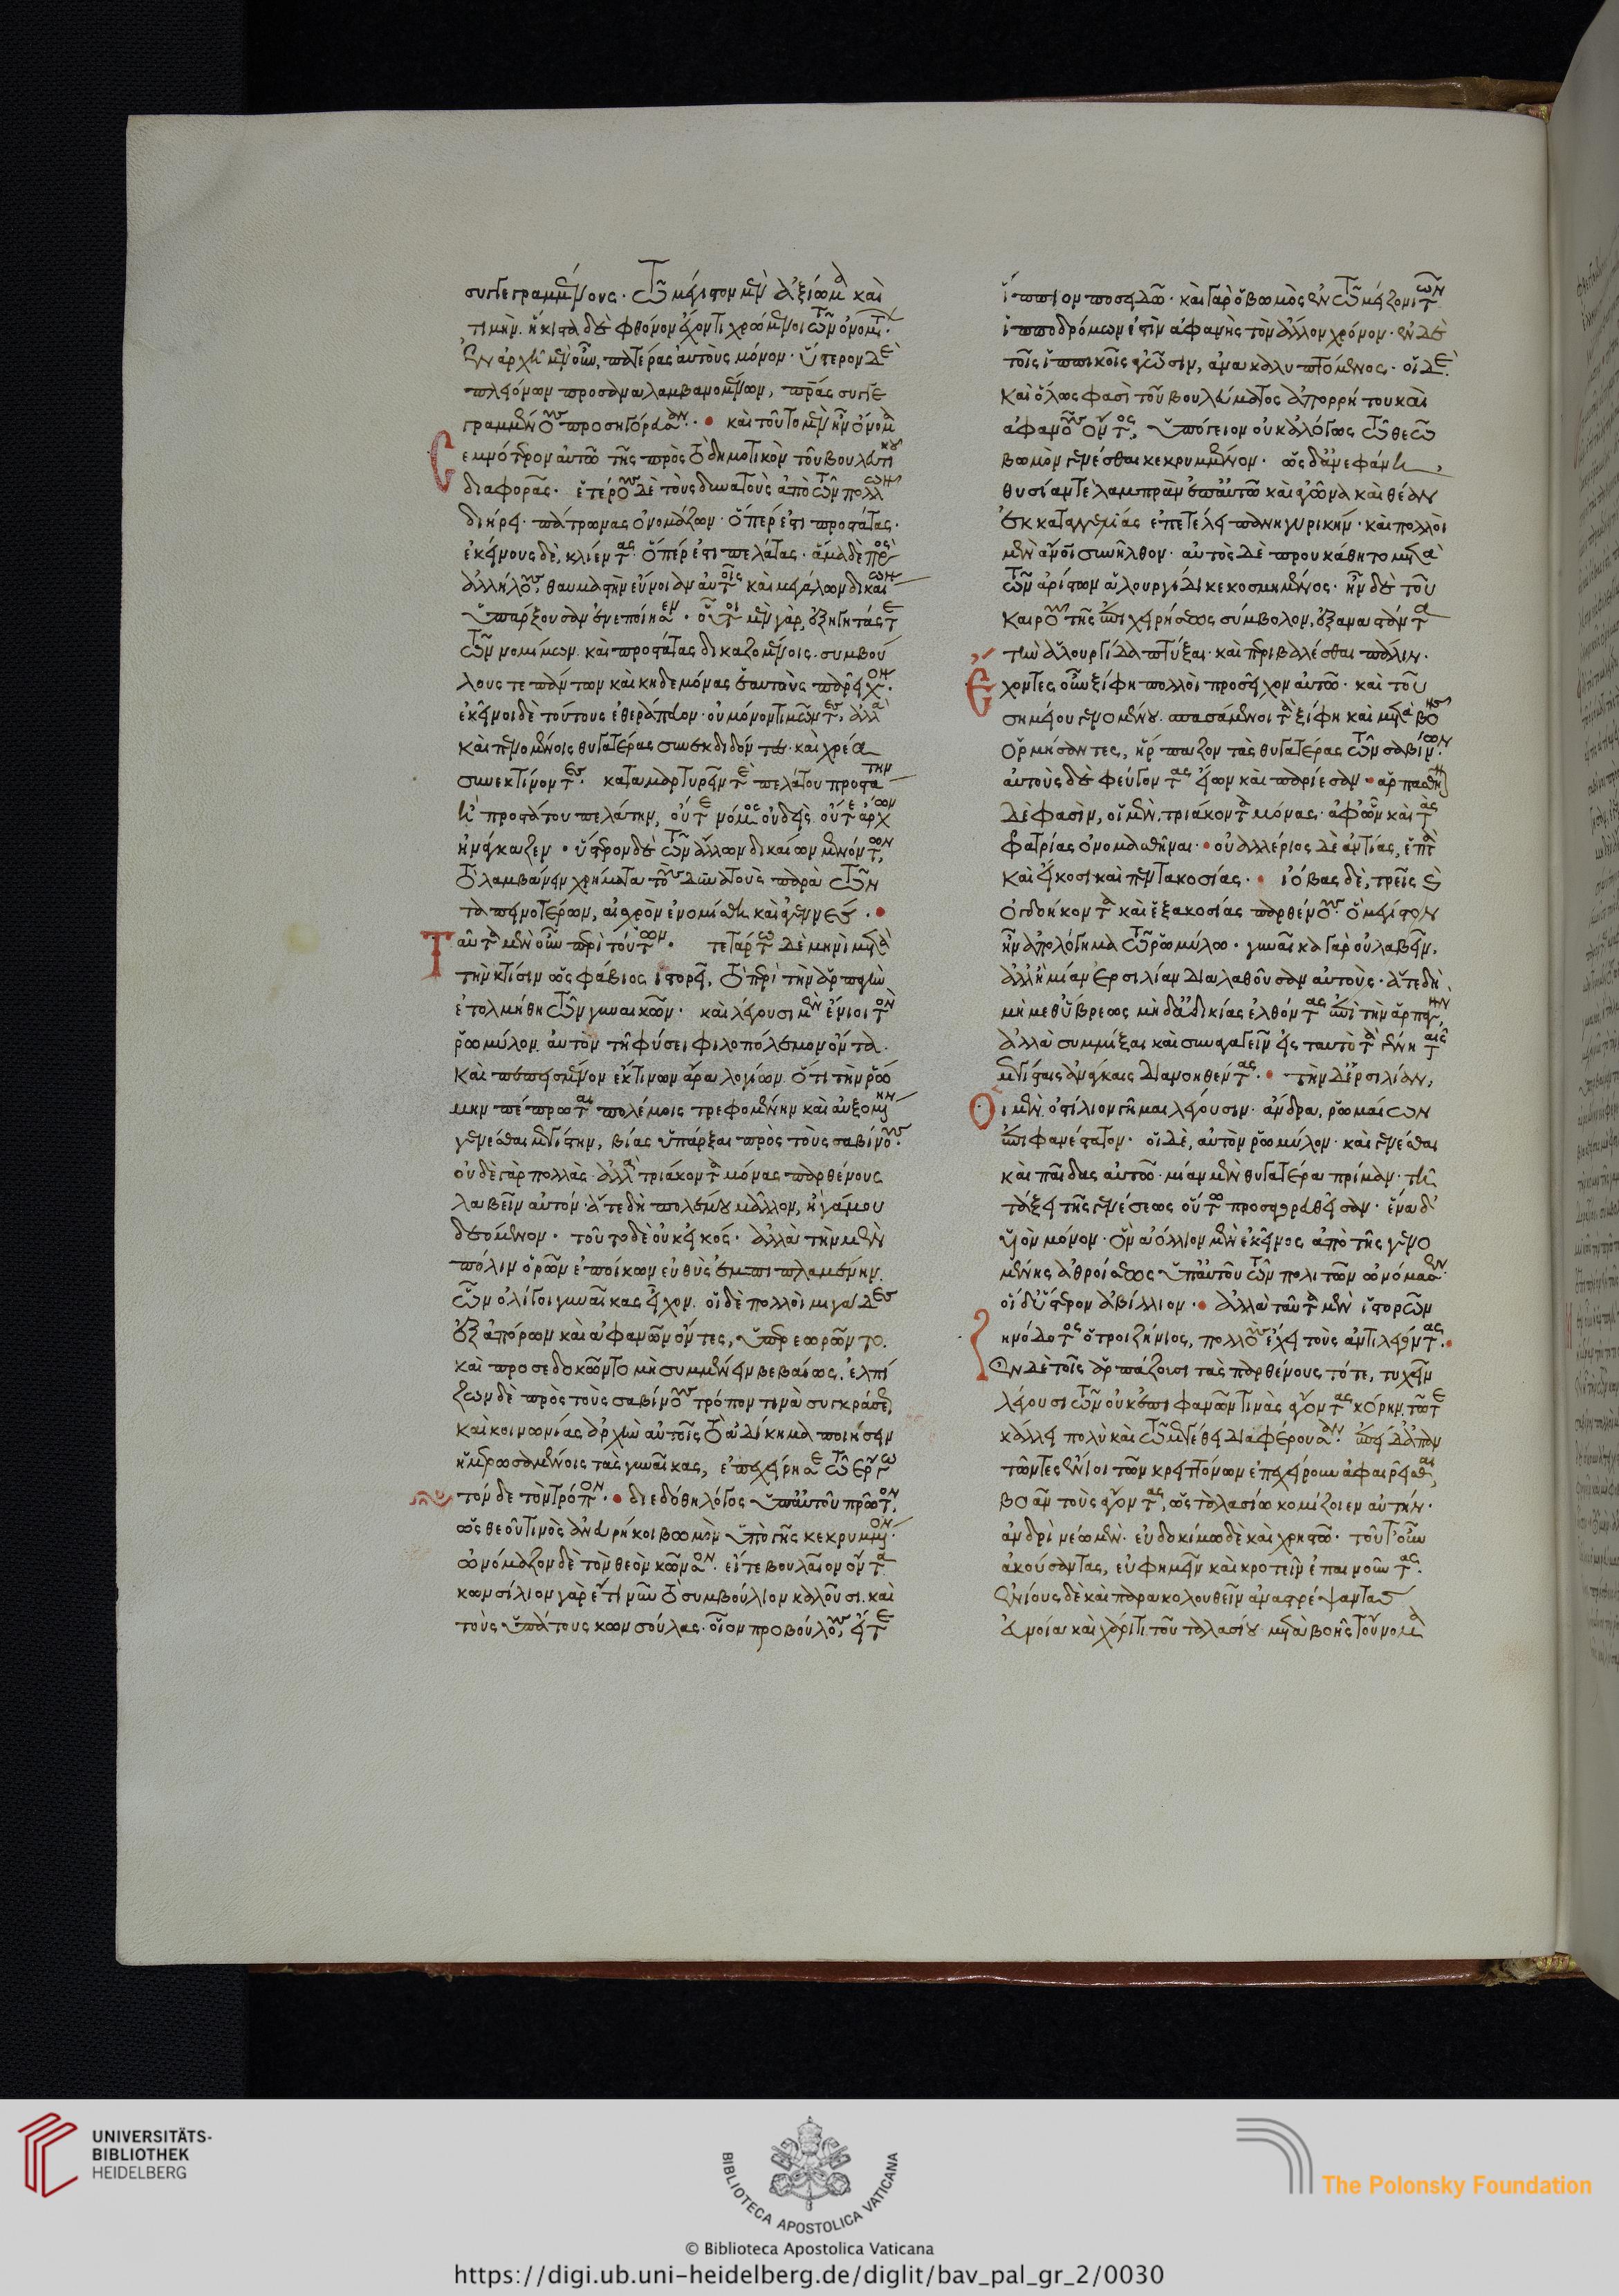 συγγεγραμμένους· τῶ μέγιστον μὲν ἀξίωμα καὶ
τιμὴν. ἥκιστα δὲ φθόνον ἔχοντι χρώμενοι τῶν ὀνομάτ.
Ἐν ἀρχῆ μὲν οὖν, πατέρας αὐτοὺς μόνον· ὕστερον δὲ
πλειόνων προσαναλαμβανομένων, πρας συγγε
γραμμένους προσηγόρευσαν· καὶ τοῦτο μὲν ἦν ὄνομα
σεμνότερον αὐτῶ τῆς πρὸς τὸ δημοτικὸν τοῦ βουλευτικοῦ
διαφορᾶς· ἑτέροις δὲ τοὺς δυνατοὺς ἀπὸ τῶν πολλῶν
διήρει· πάτρωνας ὀνομάζων· ὅπέρ ἐστι προστάτας·
ἐκείνους δὲ, κλιέντας· ὅπέρ ἐστι πελάτας· ἅμα δὲ πρὸς
ἀλλήλους, θαυμαστὴν εὔνοιαν αὐτοῖς καὶ μεγάλων δικαίων
ὑπάρξουσαν ἐνεποίησεν· οὗτοι μὲν γὰρ, ἐξηγητάς τε
τῶν νομίμων. καὶ προστάτας δικαζομένοις. συμβού
λους τε πάντων καὶ κηδεμόνας ἑαυτοὺς παρεῖχον·
ἐκεῖνοι δὲ τούτους ἐθεράπευον· οὐ μόνον τιμῶντες, ἀλλὰ
καὶ πενομένοις θυγατέρας συνεκδιδόντες· καὶ χρέα
συνεκτίνοντες· καταμαρτυρεῖν τε πελάτου προστάτην
ἢ προστάτου πελάτην, οὔτε νόμος οὐδεὶς οὔτε ἀρχόντων
ἠνάγκαζεν· ὕστερον δὲ τῶν ἄλλων δικαίων μενόντων,
τὸ λαμβάνειν χρήματα τοὺς δυνατοὺς παρὰ τῶν
ταπεινοτέρων, αἰσχρὸν ἐνομίσθη καὶ ἀγεννές·
Ταῦτα μὲν οὖν περὶ τούτων· τετάρτω δὲ μηνὶ μετὰ
τὴν κτίσιν ὡς φάβιος ἱστορεῖ, τὸ περὶ τὴν ἁρπαγὴν
ἐτολμήθη τῶν γυναικῶν· καὶ λέγουσι μὲν ἔνιοι τὸν
ῥωμύλον. αὐτὸν τῆ φύσει φιλοπόλεμον ὄντα.
καὶ πεπεισμένον ἐκ τινων ἄρα λογίων. ὅτι τὴν ῥώ
μην πέπρωται πολέμοις τρεφομένην καὶ αὐξομένην
γενέσθαι μεγίστην, βίας ὑπάρξαι πρὸς τοὺς σαβίνους·
οὐδὲ γὰρ πολλὰς· ἀλλὰ τριάκοντα μόνας παρθένους
λαβεῖν αὐτόν· ἅτε δὴ πολέμου μᾶλλον, ἢ γάμου
δεόμενον· τοῦτο δὲ οὐκ εἰκός· ἀλλὰ τὴν μὲν
πόλιν ὁρῶν ἐποίκων εὐθὺς ἐμπιπλαμένην.
ὧν ὀλίγοι γυναῖκας εἶχον. οἱ δὲ πολλοὶ μιγάδες
ἐξ ἀπόρων καὶ ἀφανῶν ὄντες, ὑπερεωρῶντο.
καὶ προσεδοκῶντο μὴ συμμένειν βεβαίως. ἐλπί
ζων δὲ πρὸς τοὺς σαβίνους τρόπον τινὰ συγκράσεως
καὶ κοινωνίας ἀρχὴν αὐτοῖς τὸ ἀδίκημα ποιήσειν
ἡμερωσαμένοις τὰς γυναῖκας, ἐπεχείρησε τῶ ἔργω
τόνδε τὸν τρόπον· διεδόθη λόγος ὑπ' αὐτοῦ πρῶτον,
ὡς θεοῦ τινος ἀνευρήκοι βωμὸν ὑπὸ γῆς κεκρυμμένον·
ὠνόμαζον δὲ τὸν θεὸν κῶνσον· εἴτε βουλαῖον ὄντα
κωνσίλιον γὰρ ἔτι νῦν τὸ συμβούλιον καλοῦσι. καὶ
τοὺς ὑπάτους κωνσούλας· οἷον προβούλους, εἴτε
ἵππιον ποσειδῶ· καὶ γὰρ ὁ βωμὸς ἐν τῶ μείζονι τῶν
ἱπποδρόμων ἐστὶν ἀφανὴς τὸν ἄλλον χρόνον· ἐν δὲ
τοῖς ἱππικοῖς ἀγῶσιν, ἀνακαλυπτόμενος· οἱ δὲ
καὶ ὅλως φασὶ τοῦ βουλεύματος ἀπορρήτου καὶ
ἀφανοῦς ὄντος, ὑπόγειον οὐκ ἀλόγως τῶ θεῶ
βωμὸν γενέσθαι κεκρυμμένον· ὡς δ' ἀνεφάνη,
θυσίαν τε λαμπρὰν ἐπ' αὐτῶ καὶ ἀγῶνα καὶ θέαν
ἐκ καταγγελίας ἐπετέλει πανηγυρικήν· καὶ πολλοὶ
μὲν ἄνθρωποι συνῆλθον· αὐτὸς δὲ προυκάθητο μετὰ
τῶν ἀρίστων ἁλουργίδι κεκοσμημένος· ἦν δὲ τοῦ
καιροῦ τῆς ἐπιχειρήσεως σύμβολον, ἐξαναστάντα
τὴν ἁλουργίδα πτύξαι· καὶ περιβαλέσθαι πάλιν·
Ἔχοντες οὖν ξίφη πολλοὶ προσεῖχον αὐτῶ· καὶ τοῦ
σημείου γενομένου. σπασάμενοι τὰ ξίφη καὶ μετὰ βοῆς
ὁρμήσαντες, ἥρπαζον τὰς θυγατέρας τῶν σαβίνων·
αὐτοὺς δὲ φεύγοντας εἴων καὶ παρίεσαν· ἁρπασθῆναι
δὲ φασὶν, οἱ μὲν, τριάκοντα μόνας· ἀφ' ὧν καὶ τὰς
φατρίας ὀνομασθῆναι· οὐαλλέριος δὲ ἀντίας, ἑπτὰ
καὶ εἴκοσι καὶ πεντακοσίας· ἰόβας δὲ, τρεῖς καὶ
ὀγδοήκοντα καὶ ἑξακοσίας παρθένους· ὃ μέγιστον
ἦν ἀπολόγημα τῶ ῥωμύλω· γυναῖκα γὰρ οὐ λαβεῖν,
ἀλλ' ἢ μίαν ἐρσιλίαν διαλαθοῦσαν αὐτούς· ἅτε δὴ
μὴ μεθ' ὕβρεως μὴ δ' ἀδικίας ἐλθόντας ἐπὶ τὴν ἁρπαγήν,
ἀλλὰ συμμίξαι καὶ συναγαγεῖν εἰς ταυτὸ τὰ γένη ταῖς
μεγίσταις ἀνάγκαις διανοηθέντας· τὴν δ' ἐρσιλίαν,
Οἱ μὲν ὁστίλιον γῆμαι λέγουσιν· ἄνδρα, ῥωμαίων
ἐπιφανέστατον· οἱ δὲ, αὐτὸν ῥωμύλον· καὶ γενέσθαι
καὶ παῖδας αὐτῶ· μίαν μὲν θυγατέρα πρίμαν· τῆ
τάξει τῆς γενέσεως οὕτω προσαγορευθεῖσαν· ἕνα δ'
υἱὸν μόνον· ὃν ἀόλλιον μὲν ἐκεῖνος ἀπὸ τῆς γενο
μένης ἀθροίσεως ὑπ' αὐτοῦ τῶν πολιτῶν ὠνόμασεν·
οἱ δ' ὕστερον ἀβίλλιον· ἀλλὰ ταῦτα μὲν ἱστορῶν
ζηνόδοτος ὁ τροιζήνιος, πολλοὺς ἔχει τοὺς ἀντιλέγοντας·
Ἐν δὲ τοῖς ἁρπάζουσι τὰς παρθένους τότε, τυχεῖν
λέγουσι τῶν οὐκ ἐπιφανῶν τινὰς ἄγοντας κόρην. τῶ τε
κάλλει πολὺ καὶ τῶ μεγέθει διαφέρουσαν· ἐπεὶ δ' ἀπαν
τῶντες ἔνιοι τῶν κρειττόνων ἐπεχείρουν ἀφαιρεῖσθαι,
βοᾶν τοὺς ἄγοντας, ὡς ταλασίω κομίζοιεν αὐτήν·
ἀνδρὶ νέω μὲν· εὐδοκίμω δὲ καὶ χρηστῶ· τοῦτ' οὖν
ἀκούσαντας, εὐφημεῖν καὶ κροτεῖν ἐπαινοῦντας·
ἐνίους δὲ καὶ παρακολουθεῖν ἀναστρέψαντας
εὐνοία καὶ χάριτι τοῦ ταλασίου· μετὰ βοῆς τοὔνομα
UNIVERSITÄTS-
BIBLIOTHEK
HEIDELBERG
BIBLIOTECA APOSTOLICA VATICANA
© Biblioteca Apostolica Vaticana
The Polonsky Foundation
https://digi.ub.uni-heidelberg.de/diglit/bav_pal_gr_2/0030